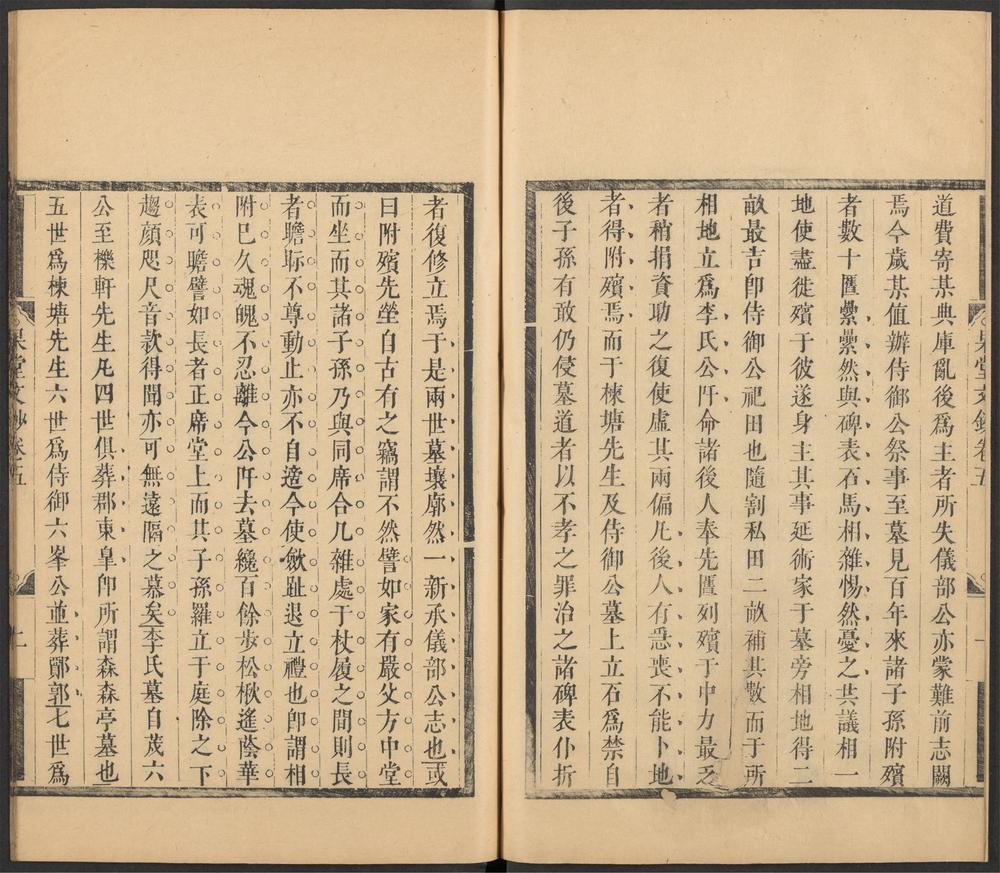 道費寄某典庫亂後爲主者所失儀部公亦蒙難前志闕
焉今歲某值辦侍御公祭事至墓見百年來諸子孫附殯
者數十匶纍纍然與碑表石馬相雜惕然憂之共議相一
地使盡徙殯于彼遂身主其事延術家于墓旁相地得二
畝最吉卽侍御公祀田也隨割私田二畝補其數而于所
相地立爲李氏公阡命諸後人奉先匶列殯于中力最乏
者稍捐資助之復使虛其兩偏凡後人有惡喪不能卜地
者得附殯焉而于棟塘先生及侍御公墓上立石爲禁自
後子孫有敢仍侵墓道者以不孝之罪治之諸碑表仆折
者復修立焉于是兩世墓壤廓然一新承儀部公志也或
曰附殯先塋自古有之竊謂不然譬如家有嚴父方中堂
而坐而其諸子孫乃與同席合几雜處于杖履之間則長
者瞻眎不尊動止亦不自適今使歛趾退立禮也卽謂相
附已久魂魄不忍離今公阡去墓纔百餘步松楸遙蔭華
表可瞻譬如長者正席堂上而其子孫羅立于庭除之下
趨顏咫尺音欬得聞亦可無遠隔之慕矣李氏墓自茂六
公至櫟軒先生凡四世俱葬郡東皐卽所謂森森亭墓也
五世爲棟塘先生六世爲侍御六峯公並葬鄮郭七世爲
杲堂文鈔卷五
一
杲堂文鈔卷五
二